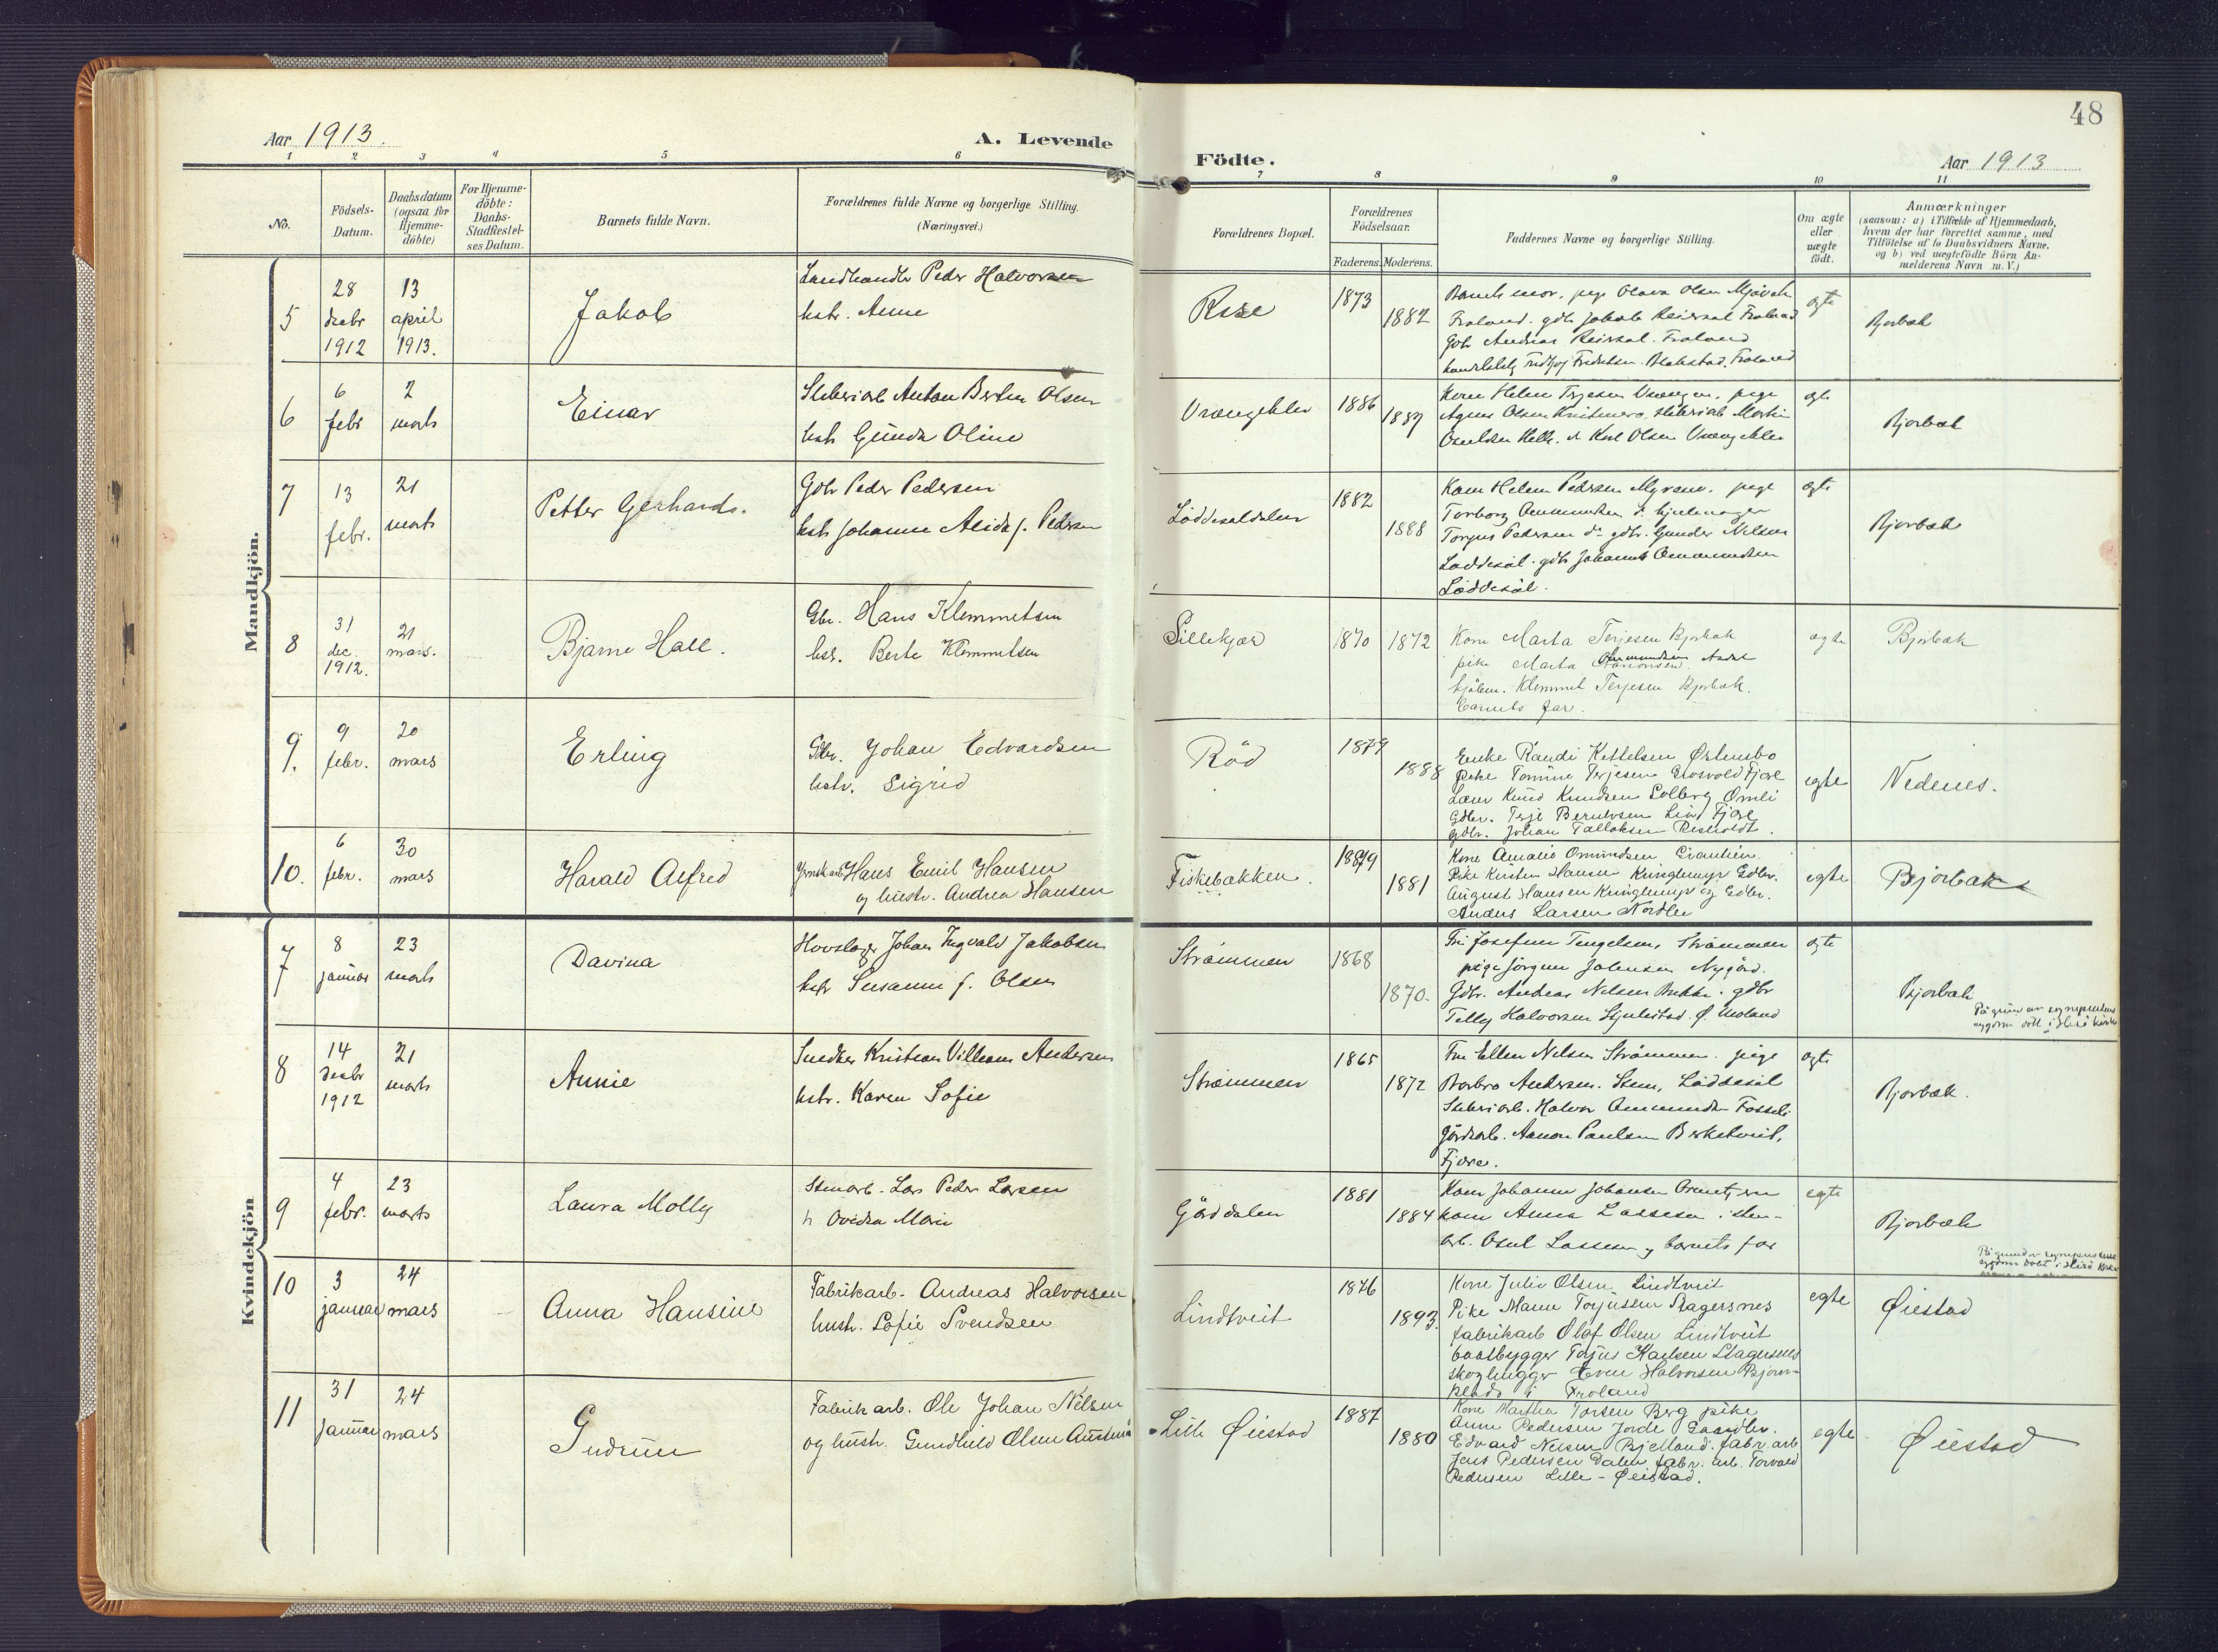 48
Aar 1913.
A. Levende
Födte.
Aar 1913
1 2 3 4 5 6 7 8 9 10 11
No.
Födsels-
Datum.
Daabsdatum
(ogsaa for
Hjemme-
döbte)
For Hjemme-
döbte:
Daabs-
Stadfæstel-
ses Datum.
Barnets fulde Navn.
Forældrenes fulde Navne og borgerlige Stilling.
(Næringsvei.)
Forældrenes Bopæl.
Forældrenes
Födselsaar.
Faderens. Moderens.
Faddernes Navne og borgerlige Stilling.
Om ægte
eller
uægte
födt.
Anmærkninger
(saasom: a) i Tilfælde af Hjemmedaab,
hvem der har forrettet samme, med
Tilföielse af to Daabsvidners Navne.
og b) ved uægtefödte Börn An-
melderens Navn m. V.)
Mandkjön.
5
28
decbr
1912
13
april
1913.
Jakob
Landhandler Peder Halvorsen
hstr. Anne
Rise
1873
1882
ægte
Bjorbæk
6
6
febr
2
marts
Einar
Sliberiarb Anton Bertin Olsen
hstr Gunda Oline
Vrengekler
1886
1889
ægte
Bjorbæk
7
13
febr.
21
marts
Petter Gerhards.
Gdbr Peder Pedersen
hstr Johanne Alida f. Pedersen
Löddesoldalen
1882
1888
Kone Helene Pedersen Myrene. pige
Torborg Ommundsen
Torjus Pedersen do gdbr. Gunder Nilsen
Løddesöl. gdbr Johannes Ommundsen
Løddesöl.
ægte
Bjorbæk
8
31
dec.
1912.
21
mars.
Bjarne Hall.
Gbr. Hans Klemmetsen
hstr. Berte Klemmetsen
Sillekjær
1870 1872
Kone Marta Terjesen Bjorbæk
pike Marta Ommundsen
Klemmet Terjesen Bjorbæk.
barnets far.
ægte
Bjorbæk
9.
9
febr.
20
mars
Erling
Gbr. Johan Edvardsen
hstr. Sigrid
Röd
1879
1888
Enke Randi Kittelsen Østensbo
Pike Tomine Terjesen Fjære
Knud Knudsen Solberg Omli
Gdbr. Terje Berntsen Lind Fjære
gdbr. Johan Tallaksen
egte
Nedenes.
10.
6
febr.
30
mars
Harald Alfred
Hans Emil Hansen
og hustr. Andrea Hansen
Fiskebakken.
1879
1881
Kone Amalie Omundsen
Pike Kirsten Hansen Kringlemyr Gdbr.
August Hansen Kringlemyr og Gdbr.
Anders Larsen Nordbø
egte
Bjorbæk
Kvindekjön
7
8
januar
23
marts
Davina
Hovslager Johan Ingvald Jakobsen
hstr Susanne f. Olsen
Strømmen
1868
1870.
Fru Josefine Tengelsen, Strømmen
pige Jörgine Johnsen Nygård.
Gdbr. Andreas Nilsen . gdbr
Telly Halvorsen Stjulestad. Ø. Moland
ægte
Bjorbæk
8
14
decbr
1912
21
marts
Annie
Snedker Kristian Villiam Andersen
hstr. Karen Sofie
Strømmen
1865
1872
Fru Ellen Nilsen Strømmen. pige
Borbro Andersen. Stem, Löddesöl
Sliberiarb. Halvor Ommundsen Fosseli
Gårdsarb. Aanon Paulsen Birketveit,
Fjære.
ægte
Bjorbæk.
9
4
febr.
23
marts
Laura Molly
Stenarb. Lars Peder Larsen
h Ovidia Marie
Gårddalen
1881
1884
Kone Johanne Johansen
kone Anna Lassesen : sten-
arb. Osul Lassesen og barnets far
egte
Bjorbæk
10
3
januar
24
mars
Anna Hansine
Fabrikarb. Andreas Halvorsen
hustr. Sofie Svendsen
Lindtveit
1876
1893.
Kone Julie Olsen Lindtveit
Pike Marie Torjussen Stagersnes
fabrikarb Olaf Olsen Lindtveit
baatbygger Torjus Karlsen Stagersnes
skoghugger Even Halvorsen Bjorn-
plads i Froland
egte
Øiestad
11
31
januar
24
mars
Gudrun
Fabrik arb. Ole Johan Nilsen
og hustr. Gundhild Olsen Austenå
Lille Øiestad
1887
1880
Kone Martha Torsen Berg pike
Anne Pedersen Jorde Gaardbr.
Edvard Nilsen Bjelland. fabr. arb
Jens Pedersen Dalen fabr. arb. Torvald
Pedersen Lille-Øeistad.
egte
Øiestad